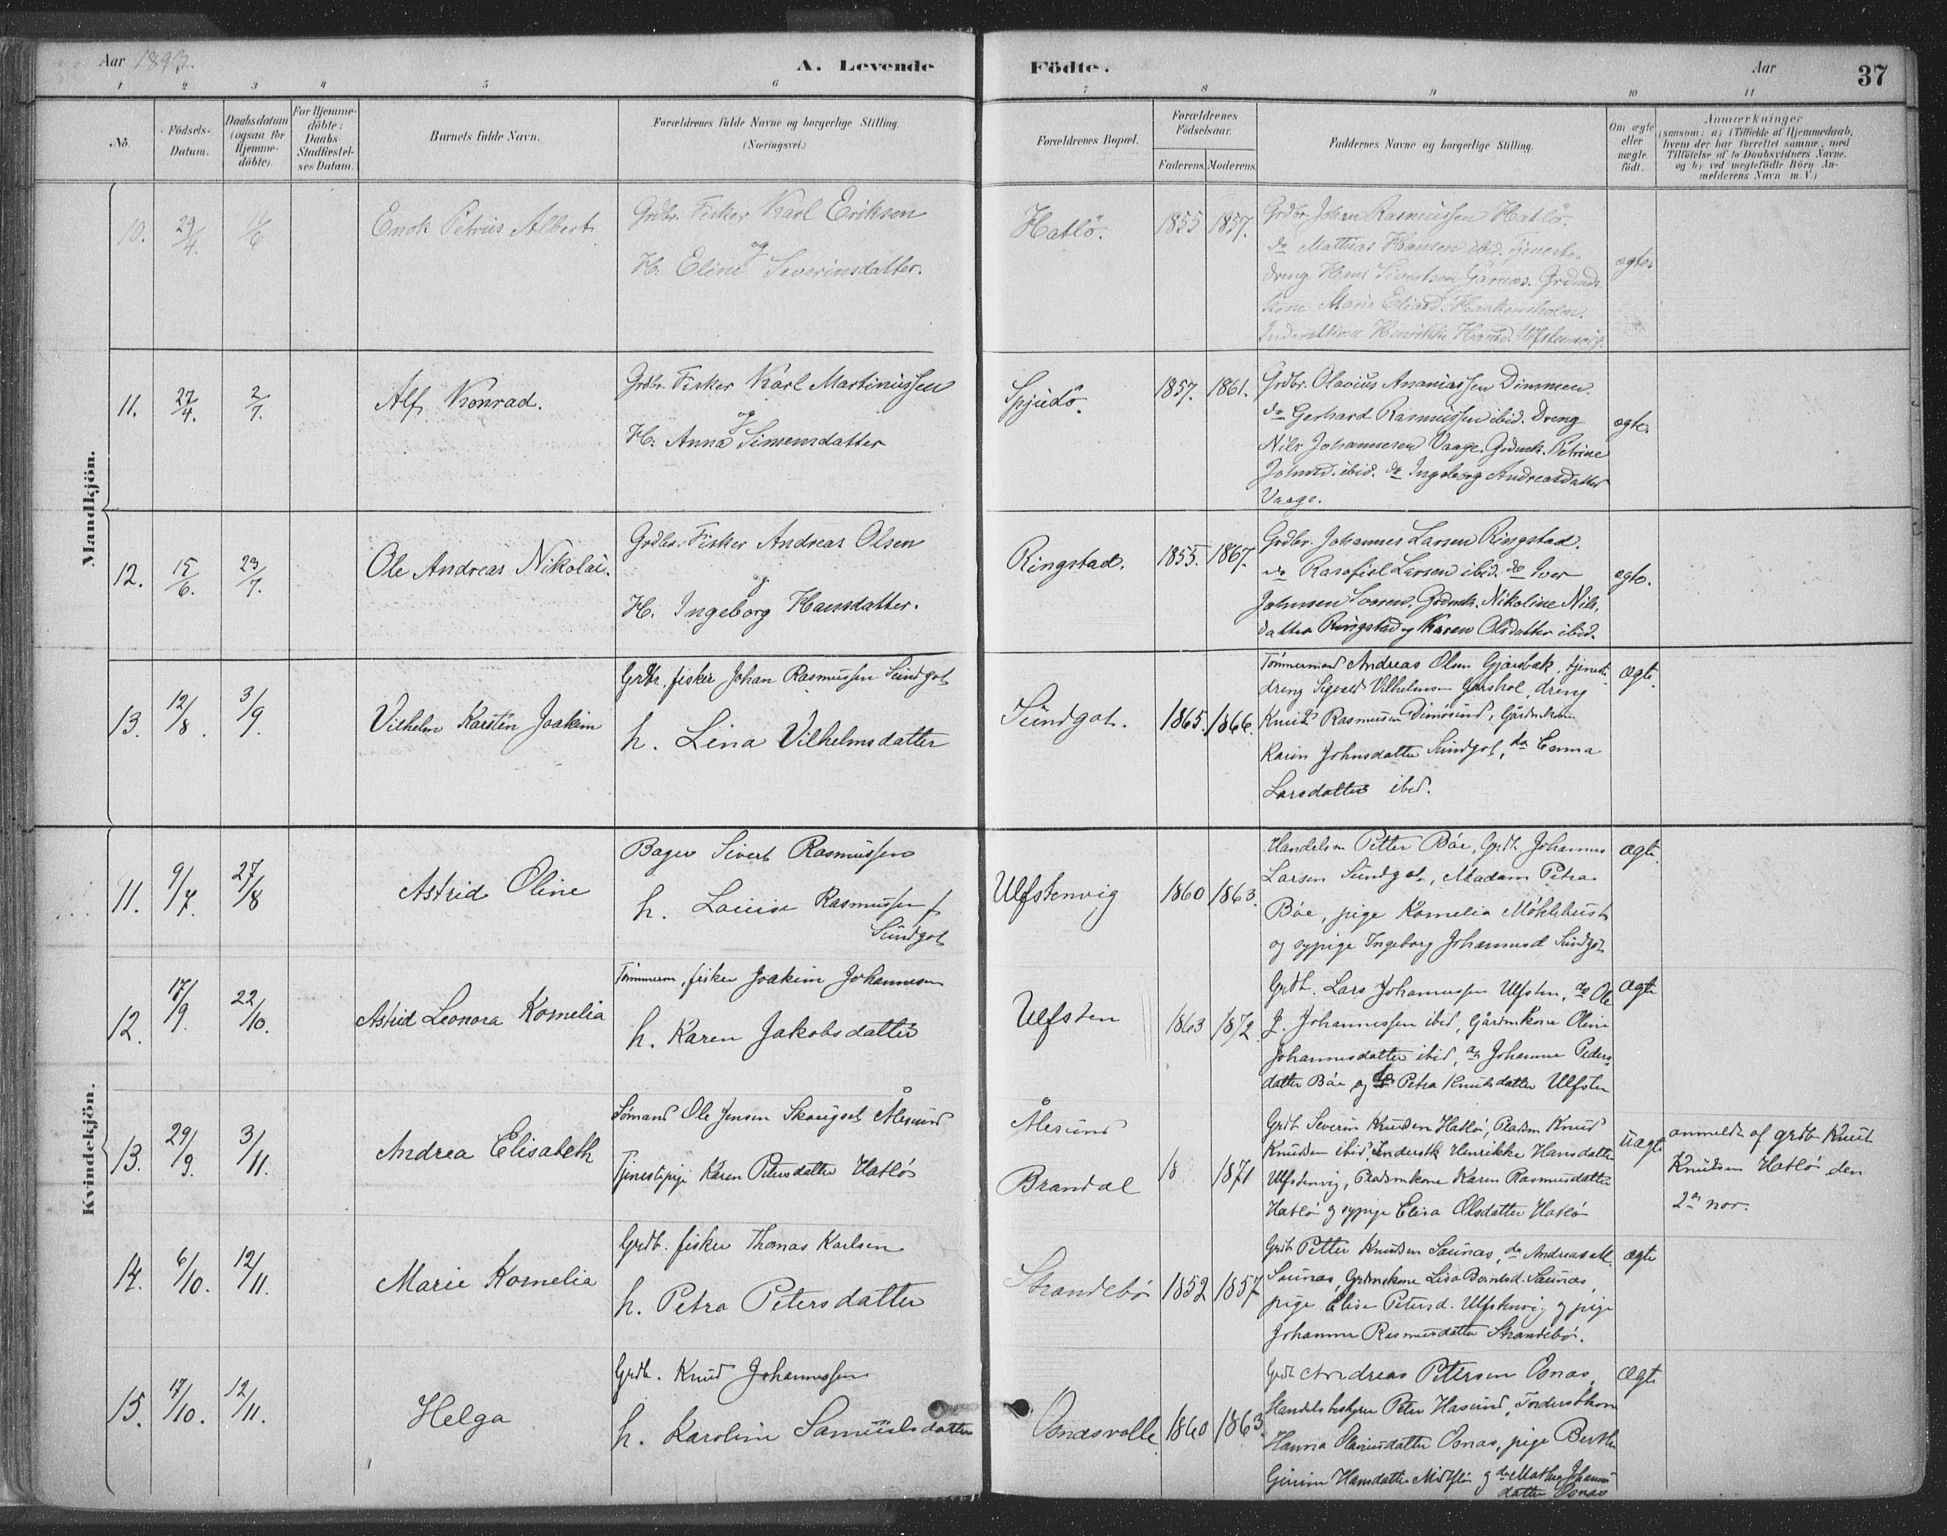 Aar 1893.
A. Levende
Födte.
Aar
37
1 2 3 4 5 6 7 8 9 10 11
No.
Födsels-Datum.
Daabsdatum (ogsaa for Hjemme-döbte).
For Hjemme-döbte: Daabs Stadfæstel-ses Datum.
Barnets fulde Navn.
Forældrenes fulde Navne og borgerlige Stilling.
(Næringsvei.)
Forældrenes Bopæl.
Forældrenes Födselsaar.
Faderens. Moderens.
Faddernes Navne og borgerlige Stilling.
Om ægte eller uægte födt.
Anmærkninger
(saasom: a) i Tilfælde af Hjemmedaab,
hvem der har forrettet samme, med
Tilföielse af to Daabsvidners Navne,
og b) ved uægtefödte Börn An-
melderens Navn m. V.)
Mandkjön.
10. 29/4. 11/6 Enok Petrus Albert.
Grdbr. Fisker Karl Eriksen
og
H. Eline Severinsdatter.
Hatlö. 1855 1857.
Grdbr. Johan Rasmussen Hatlö.
do Mathias Hansen ibid. Tjeneste-
dreng Hans Sivertsen Garnæs. Grdmds
kone Marie Eliasd. Haakonsholm.
Inderstkone Henrikke Hansd. Ulfstenvig.
ægte.
11. 27/4. 2/7. Alf Konrad.
Grdbr. Fisker Karl Martinussen
og
H. Anna Simensdatter
Spjudö. 1857. 1861.
Grdbr. Olavius Ananiassen Dimmen.
do Gerhard Rasmussen ibid. Dreng
Nils Johannesen Vaage. Grdmk. Petrine
Johnsd. ibid. do Ingeborg Andreasdatter
Vaage.
ægte.
12. 15/6. 23/7. Ole Andreas Nikolai.
Grdbr. Fisker Andreas Olsen
og
H. Ingeborg Hansdatter.
Ringstad. 1855. 1867.
Grdbr. Johannes Larsen Ringstad.
do Rasofiel Larsen ibid. do Iver
Johnsen Sorren. Grdmk. Nikoline Nils-
datter Ringstad og Karen Olsdatter ibid.
ægte.
13. 12/8. 3/9. Vilhelm Karsten Joakim
Grdbr. fisker Johan Rasmussen Sundgot
h. Lina Vilhelmsdatter
Sundgot. 1865. 1866.
Tömmermand Andreas Olsen Gjærsbak, tjeneste-
dreng Sigvald Vilhelmsen Garshol, dreng
Knut Rasmussen Dimösund, Gårdmkone
Karen Johnsdatter Sundgot, do Emma
Larsdatter ibid.
ægte.
Kvindekjön.
11. 9/7. 27/8 Astrid Oline
Bager Sivert Rasmussen
h. Louise Rasmussen f
Sundgot
Ulfstenvig 1860 1863.
Handelsm Petter Böe, Grdb. Johannes
Larsen Sundgot, Madam Petra
Böe, pige Kornelia Möklebust
og sypige Ingeborg Johannesd Sundgot
ægte.
12. 17/9. 22/10. Astrid Leonora Kornelia
Tömmerm, fisker Joakim Johannesen
h. Karen Jakobsdatter
Ulfsten 1863 1872.
Grdb. Lars Johannessen Ulfsten, do Ole
J. Johannessen ibid, Gårdmkone Oline
Johannesdatter ibid, do Johanne Peders-
datter Böe og do Petra Knutsdatter Ulfsten
Ægte
13. 29/9. 3/11. Andrea Elisabeth
Sömand Ole Jensen Skougset Ålesund
Tjenestepige Karen Petersdatter Hatlö
Ålesund
Brandal
18 1871
Grdb Severin Knudsen Hatlö, Pladsm Knud
Knudsen ibid, Inderstk Henrikke Hansdatter
Ulfstenvig, Pladsmkone Karen Rasmusdatter
Hatlö og sypige Elisa Olsdatter Hatlö
uægte
anmeldt af grdb Knut
Knudsen Hatlö den
2den nov.
14. 6/10. 12/11. Marie Kornelia
Grdb. fisker Thomas Karlsen
h. Petra Petersdatter
Strandebö 1852 1857
Grdb Petter Knudsen Saunæs, do Andreas M.
Saunæs, Grdmskone Lisa Berntsd. Saunæs,
pige Elise Petersd. Ulfstenvig og pige
Johanne Rasmusdatter Strandebö.
ægte
15. 17/10. 12/11. Helga
Grdb. Knud Johannessen
h. Karoline Samuelsdatter
Osnesvolle 1860 1863.
Grdb Andreas Petersen Osnæs,
Handelsbestyrer Peter Hasund, Jordemodkone
Hanna Olaiusdatter Osnæs, pige Berthe
Gurine Hansdatter Midtflö og do Mathea Johannes-
datter Osnæs
Ægte